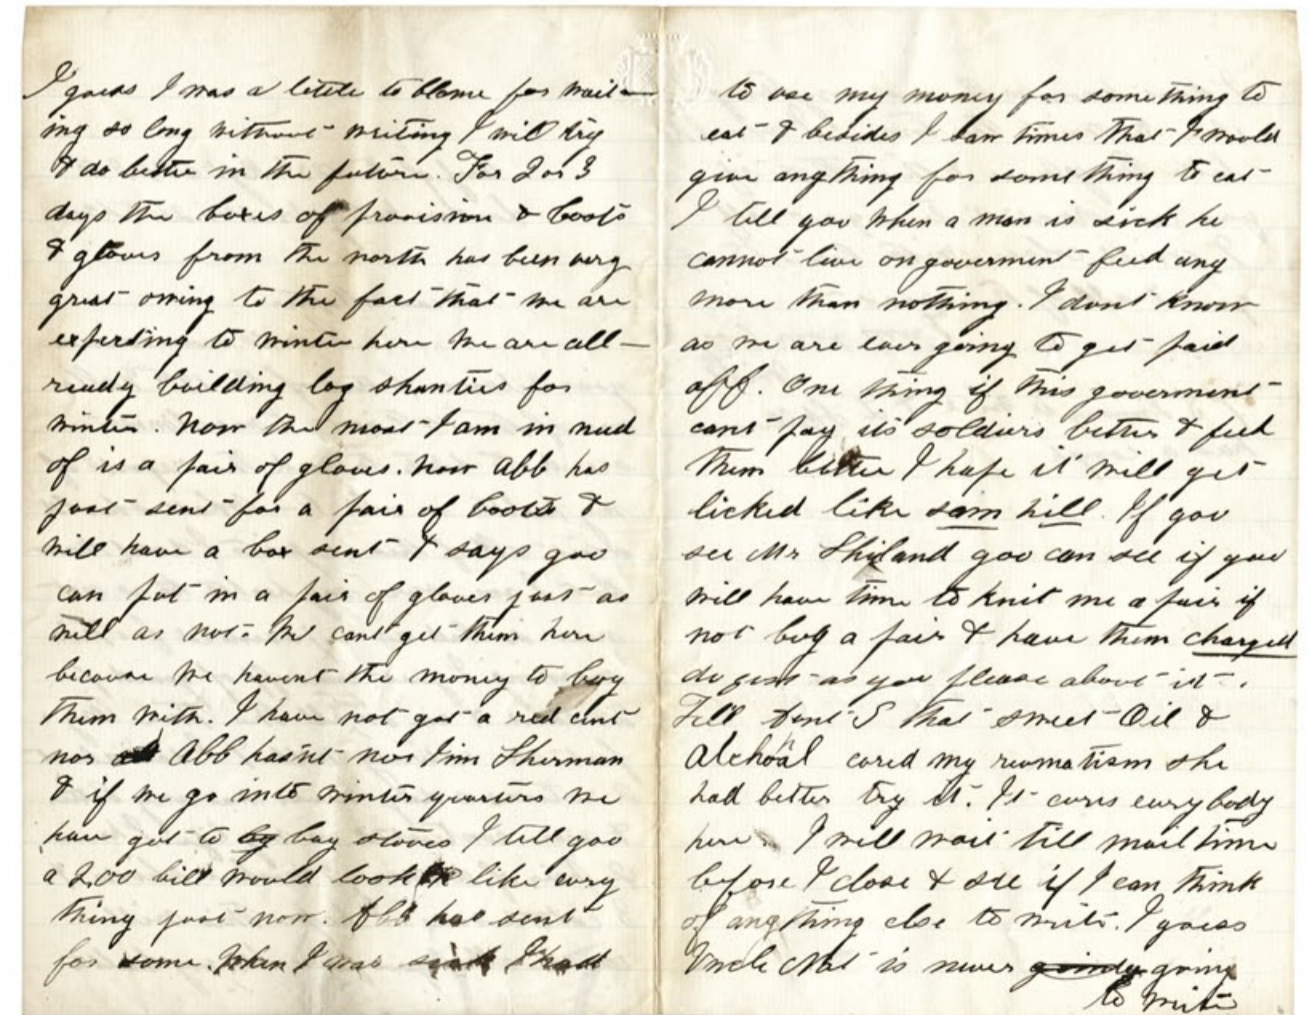 I guess I was a little to blame for wait-
ing so long without writing I will try
& do better in the future. For 2 or 3
days the boxes of provision & boots
& gloves from the north has been very
great owing to the fact that we are
expecting to winter here We are all-
ready building log shanties for
winter. Now the most I am in need
of is a pair of gloves. now Abb has
just sent for a pair of boots &
will have a box sent & says you
can put in a pair of gloves just as
well as not. We cant get them here
because We havent the money to buy
them with. I have not got a red cent
nor Abb hasnt nor Jim Sherman
& if we go into winter quarters we
have got to by buy stoves I tell you
a 2.00 bill would look like every
thing just now. Abb has sent
for some. When I was sick I had
to use my money for something to
eat & besides I saw times that I would
give anything for something to eat
I tell you when a man is sick he
cannot live on goverment feed any
more than nothing. I dont know
as we are ever going to get paid
off. One thing if this goverment
cant pay its soldiers better & feed
them better I hope it will get
licked like sam hill. If you
see Mr Shiland you can see if you
will have time to knit me a pair if
not buy a pair & have them charged
do just as you please about it.
Tell Aunt S that sweet Oil &
Alchohal cured my reumatism she
had better try it. It cures everybody
here. I will wait till mail time
before I close & see if I can think
of anything else to write. I guess
Uncle Nat is never going
to write